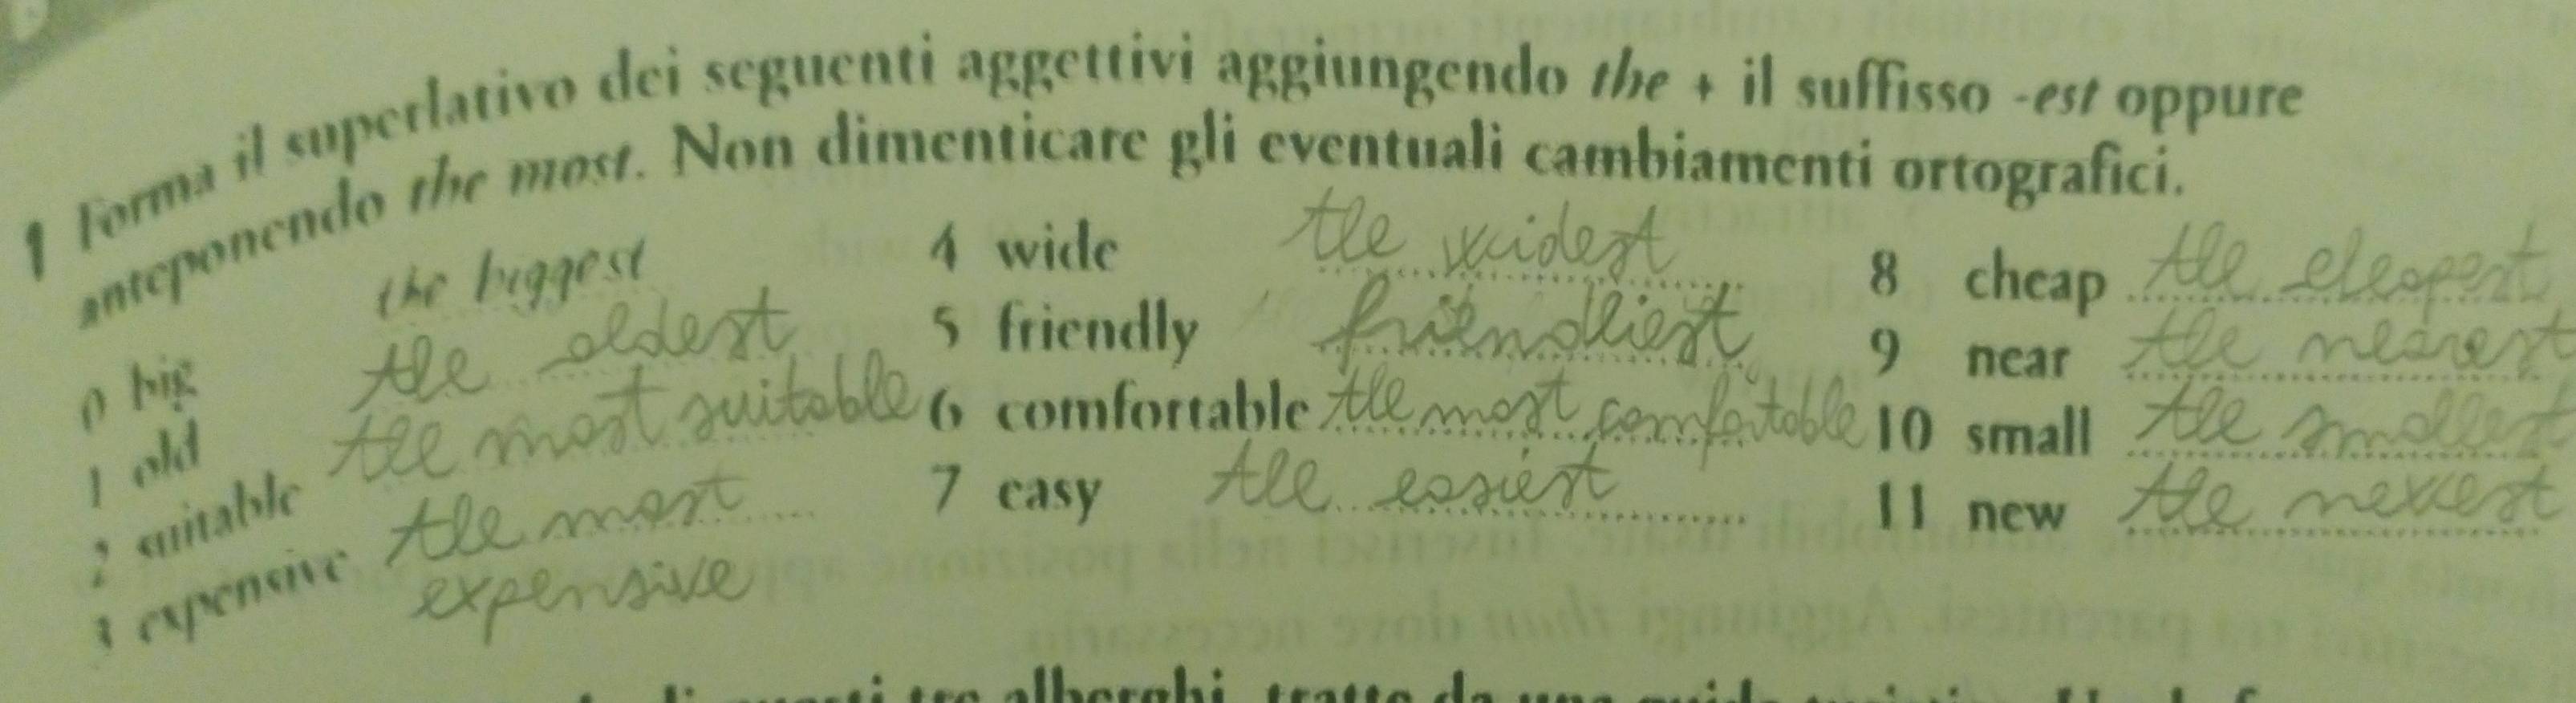 1 Forma il superlativo dei seguenti aggettivi aggiungendo the + il suffisso -est oppure
anteponendo the most. Non dimenticare gli eventuali cambiamenti ortografici.
0 big the biggest
1 old the oldest
2 suitable the most suitable
3 expensive the most
expensive
4 wide the widest
5 friendly friendliest
6 comfortable the most comfortable
7 easy the easiest
8 cheap the cheapest
9 near the nearest
10 small the smallest
11 new the newest
di questi tre alberghi, tratte da una guida